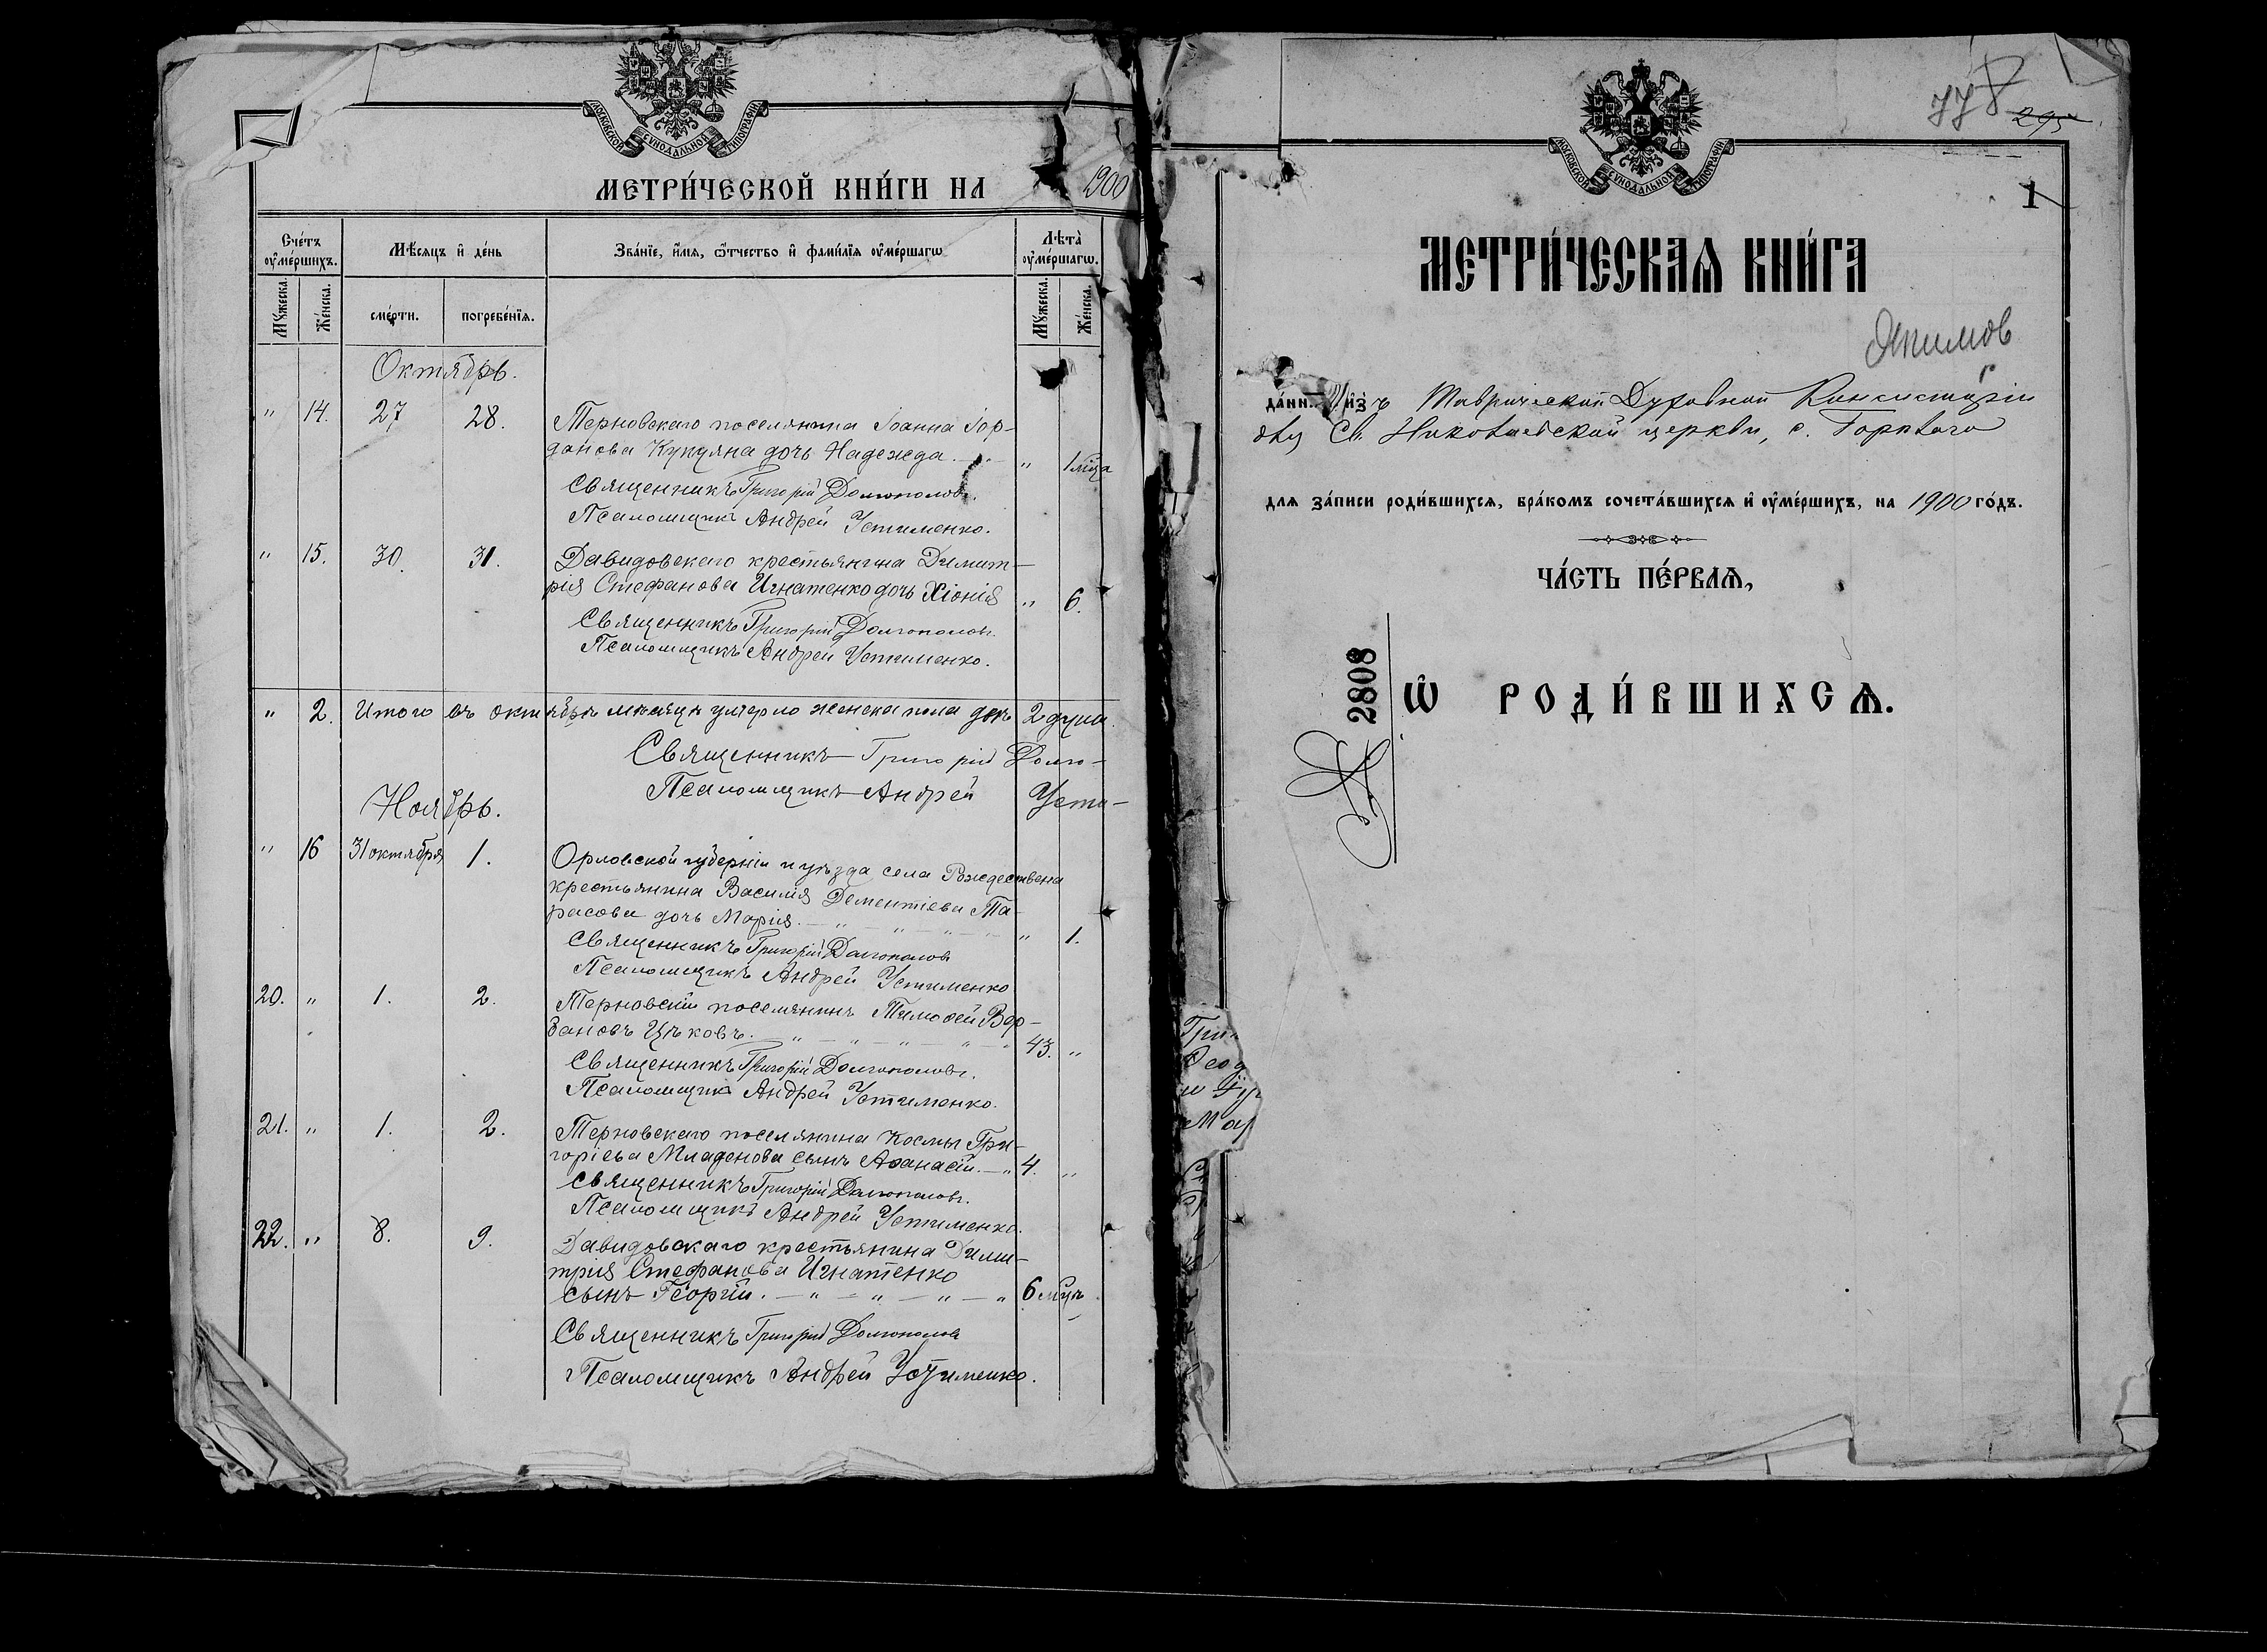 МОСКОВСКОЙ СѴНОДАЛЬНОЙ ТИПОГРАФІИ
МЕТРИ́ЧЕСКОЙ КНИ́ГИ НА 1900
Сче́тъ ᲂу҆ме́ршихъ.
Мѣ́сяцъ и҆ де́нь
Зва́нїе, и҆́мя, ѻ҆́тчество и҆ фами́лїя ᲂу҆ме́ршагѡ
Лѣта̀ ᲂу҆ме́ршагѡ.
Мꙋ́жеска.
Же́нска.
сме́рти.
погребе́нїя.
Мꙋ́жеска.
Же́нска.
Октябрь.
" 14. 27 28. Терновскаго поселянина Іоанна Іор-
данова Кукуляна дочь Надежда. — " 1 мѣца
Священникъ Григорій Долгополовъ.
Псаломщикъ Андрей Устименко.
" 15. 30. 31. Давидовскаго крестьянина Димит-
рія Стефанова Игнатенко дочь Хіонія " 6.
Священникъ Григорій Долгополовъ.
Псаломщикъ Андрей Устименко.
" 2. Итого въ октябрѣ мѣсяцѣ умерло женска пола двѣ 2 души.
Священникъ Григорій Долго-
Псаломщикъ Андрей Усти-
Ноябрь.
" 16 31 октября 1. Орловской губерніи и уѣзда села Рождествена
крестьянина Василія Дементіева Та-
расова дочь Марія. — " — " — " — " 1.
Священникъ Григорій Долгополовъ
Псаломщикъ Андрей Устименко
20. " 1. 2. Терновскій поселянинъ Тимоѳей Вор-
бановъ Цѣковъ. — " — " — " — " — " 43. "
Священникъ Григорій Долгополовъ.
Псаломщикъ Андрей Устименко.
21. " 1. 2. Терновскаго поселянина Космы Гри-
горіева Младенова сынъ Аѳанасій. — " 4. "
Священникъ Григорій Долгополовъ.
Псаломщикъ Андрей Устименко.
22. " 8. 9. Давидовскаго крестьянина Дими-
трія Стефанова Игнатенко
сынъ Георгій. — " — " — " — " 6 мѣцъ "
Священникъ Григорій Долгополовъ
Псаломщикъ Андрей Устименко.
778
295
МОСКОВСКОЙ СѴНОДАЛЬНОЙ ТИПОГРАФІИ
1
МЕТРИ́ЧЕСКАѦ КНИ́ГА
Якимов
да́нн. и҆зъ Таврической Духовной Консисторіи
для Св. Николаевской церкви, с. Горѣлаго
для за́писи роди́вшихся, бра́комъ сочета́вшихся и҆ ᲂу҆ме́ршихъ, на 1900 го́дъ.
ЧА́СТЬ ПЕ́РВАѦ,
2808
Ѡ҆ РОДИ́ВШИХСѦ.
Гри
Ѳеод
Мар